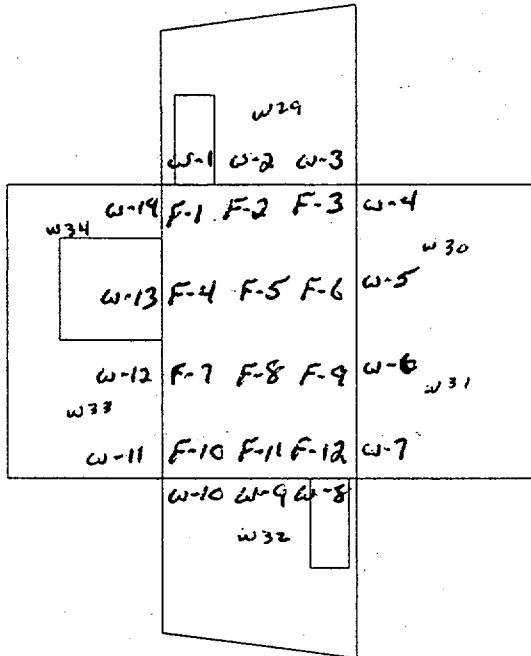 w29
w-1 w-2 w-3
w-14 F-1 F-2 F-3 w-4
w34 w30
w-13 F-4 F-5 F-6 w-5
w-12 F-7 F-8 F-9 w-6
w33 w31
w-11 F-10 F-11 F-12 w-7
w-10 w-9 w-8
w32